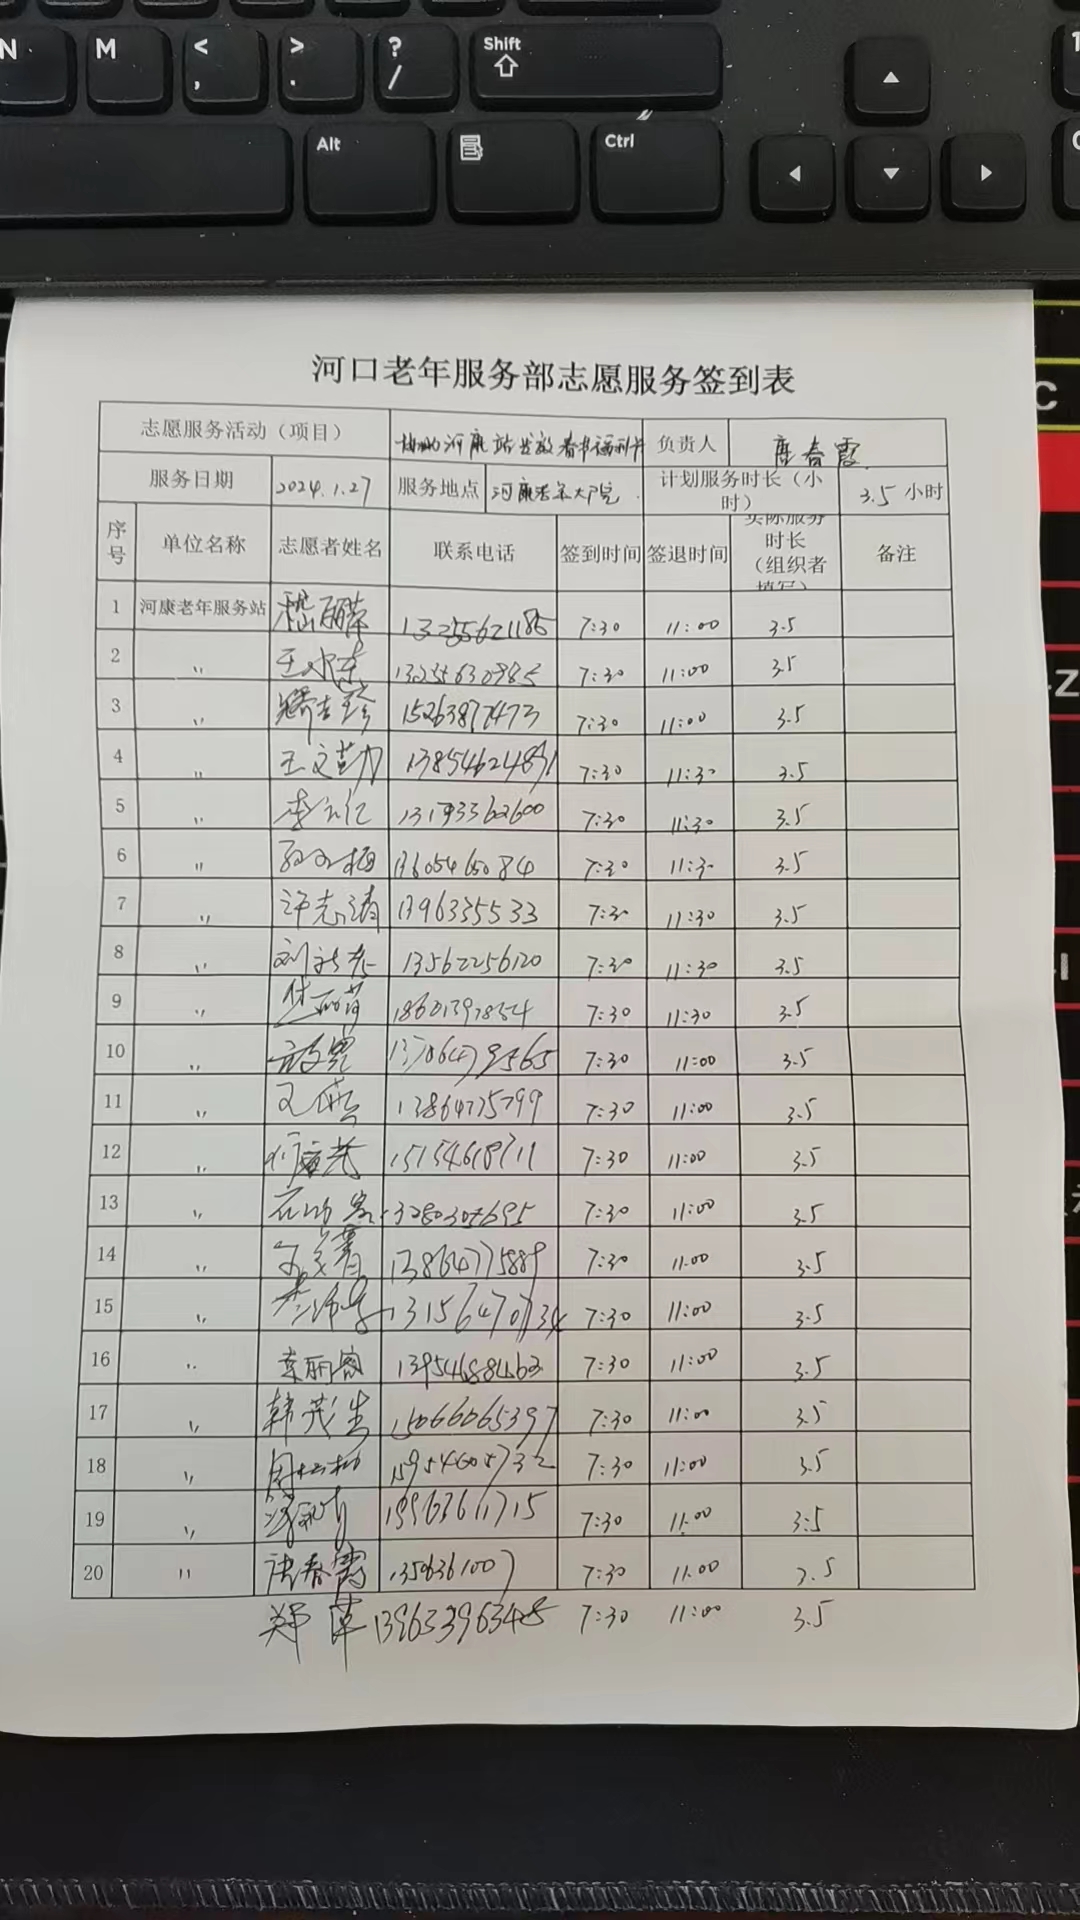 N M < , > . ? / Shift
Alt Ctrl
河口老年服务部志愿服务签到表
志愿服务活动（项目） 协助河康站发放春节福利卡 负责人 唐春霞
服务日期 2024.1.27 服务地点 河康老年大院 计划服务时长（小时） 3.5 小时
序号 单位名称 志愿者姓名 联系电话 签到时间 签退时间 实际服务时长（组织者填写） 备注
1 河康老年服务站 13255621185 7:30 11:00 3.5
2 〃 王水走 13255630985 7:30 11:00 3.5
3 〃 15263877473 7:30 11:00 3.5
4 〃 王文勤 13854624891 7:30 11:30 3.5
5 〃 李仁 7:30 11:30 3.5
6 〃 13605465084 7:30 11:30 3.5
7 〃 许志涛 1396335533 7:30 11:30 3.5
8 〃 13562256120 7:30 11:30 3.5
9 〃 18601397854 7:30 11:30 3.5
10 〃 7:30 11:00 3.5
11 〃 13864775799 7:30 11:00 3.5
12 〃 15154618711 7:30 11:00 3.5
13 〃 7:30 11:00 3.5
14 〃 13864775889 7:30 11:00 3.5
15 〃 13156470734 7:30 11:00 3.5
16 〃 13954688463 7:30 11:00 3.5
17 〃 韩茂生 15066065397 7:30 11:00 3.5
18 〃 15954605732 7:30 11:00 3.5
19 〃 19963611715 7:30 11:00 3.5
20 〃 唐春霞 7:30 11:00 3.5
郑萍 13963396348 7:30 11:00 3.5